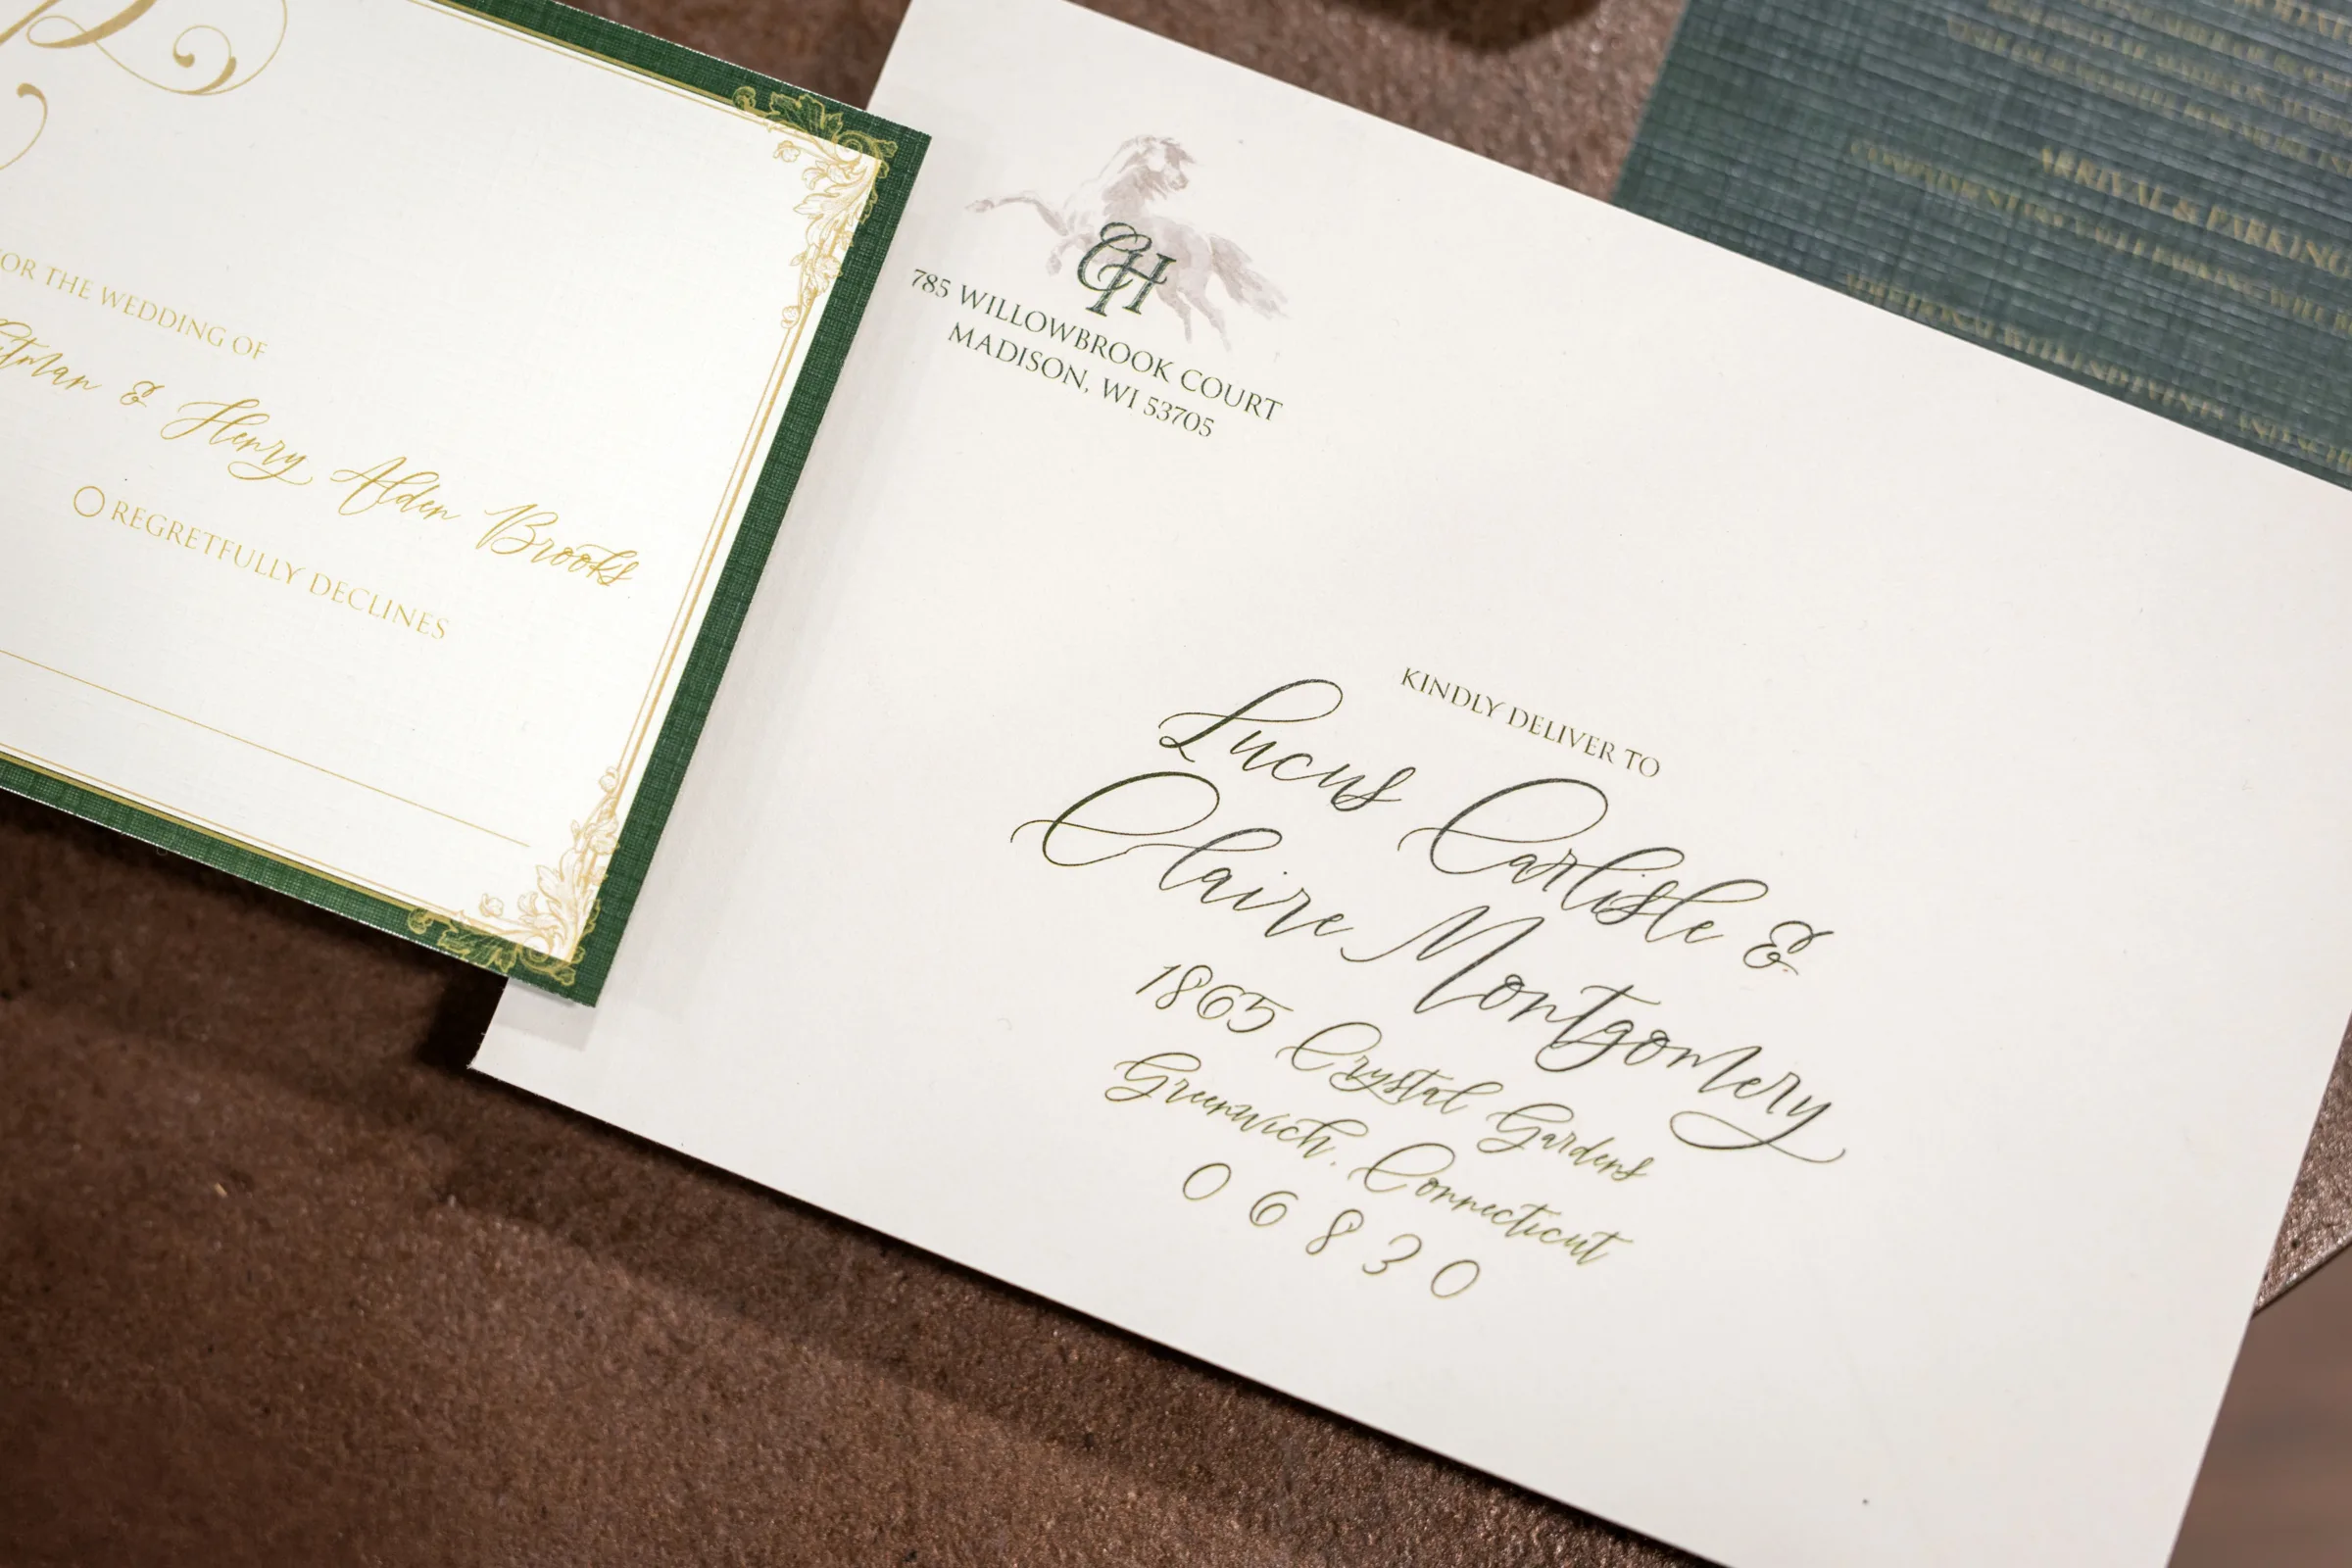 OR THE WEDDING OF
tman & Henry Alden Brooks
REGRETFULLY DECLINES
CH
785 WILLOWBROOK COURT
MADISON, WI 53705
KINDLY DELIVER TO
Lucus Carlisle &
Claire Montgomery
1865 Crystal Gardens
Greenwich, Connecticut
06830
ARRIVAL & PARKING
COMPLIMENTARY VALET PARKING WILL B